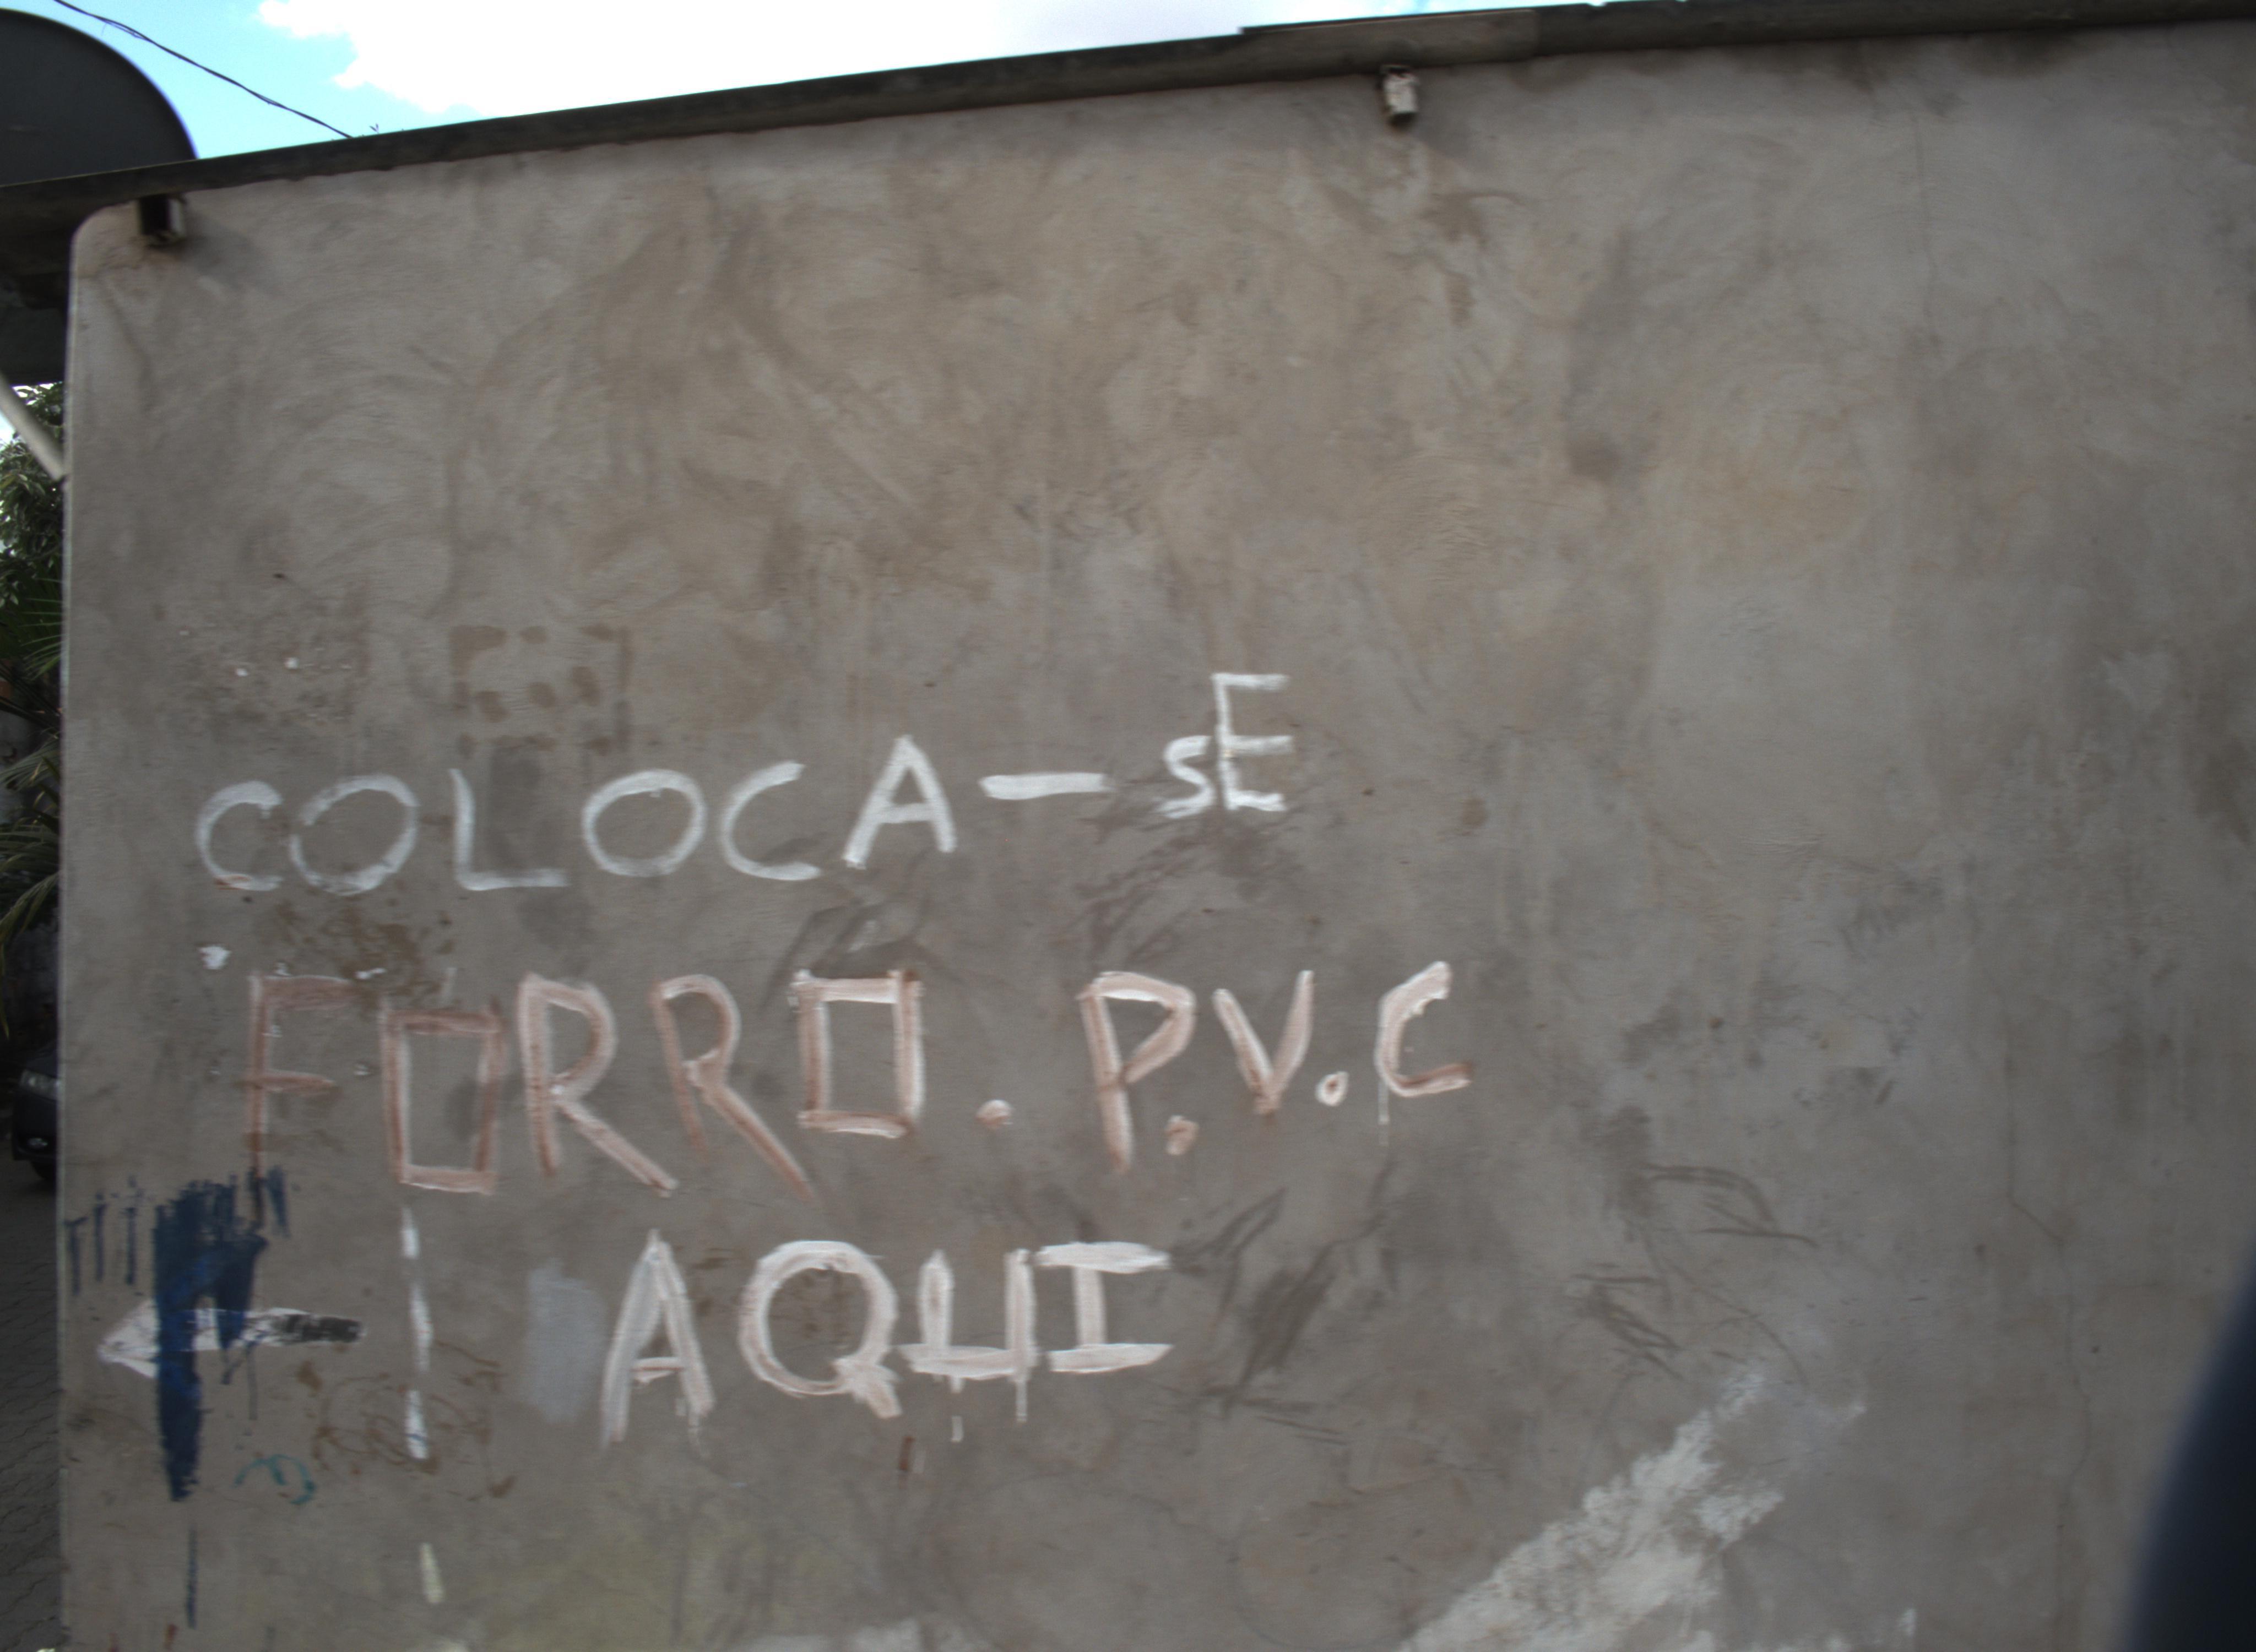 COLOCA-SE
FORRO. P.V.C
AQUI